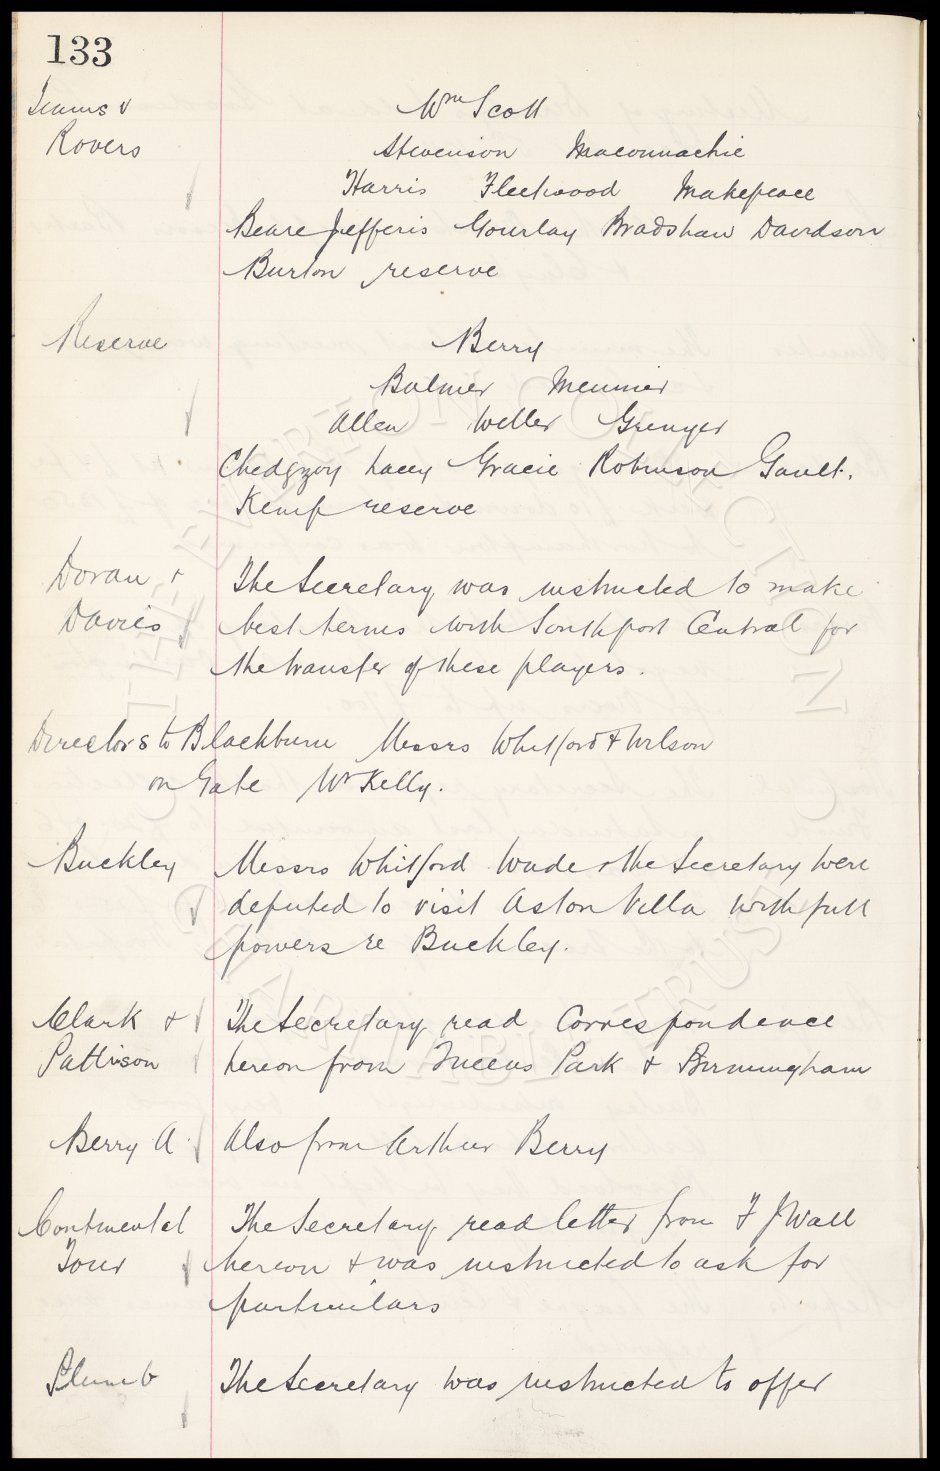 133
Teams v Wm Scott
Rovers Stevenson Maconnachie
Harris Fleetwood Makepeace
Beare Jefferis Gourlay Bradshaw Davidson
Burton reserve
Reserve Berry
Balmer Meunier
Allan Weller Grenyer
Chedgzoy Lacey Gracie Robinson Gault.
Kemp reserve
Doran + The Secretary was instructed to make
Davies best terms with Southport Central for
the transfer of these players.
Directors to Blackburn Messrs Whitford & Wilson
on Gate Mr Kelly.
Buckley Messrs Whitford Wade + the Secretary were
deputed to visit Aston Villa with full
powers re Buckley.
Clark + The Secretary read Correspondence
Pattison hereon from Queens Park + Birmingham
Berry A Also from Arthur Berry
Continental The Secretary read letter from F J Wall
Tour hereon + was instructed to ask for
particulars
Plumb The Secretary was instructed to offer